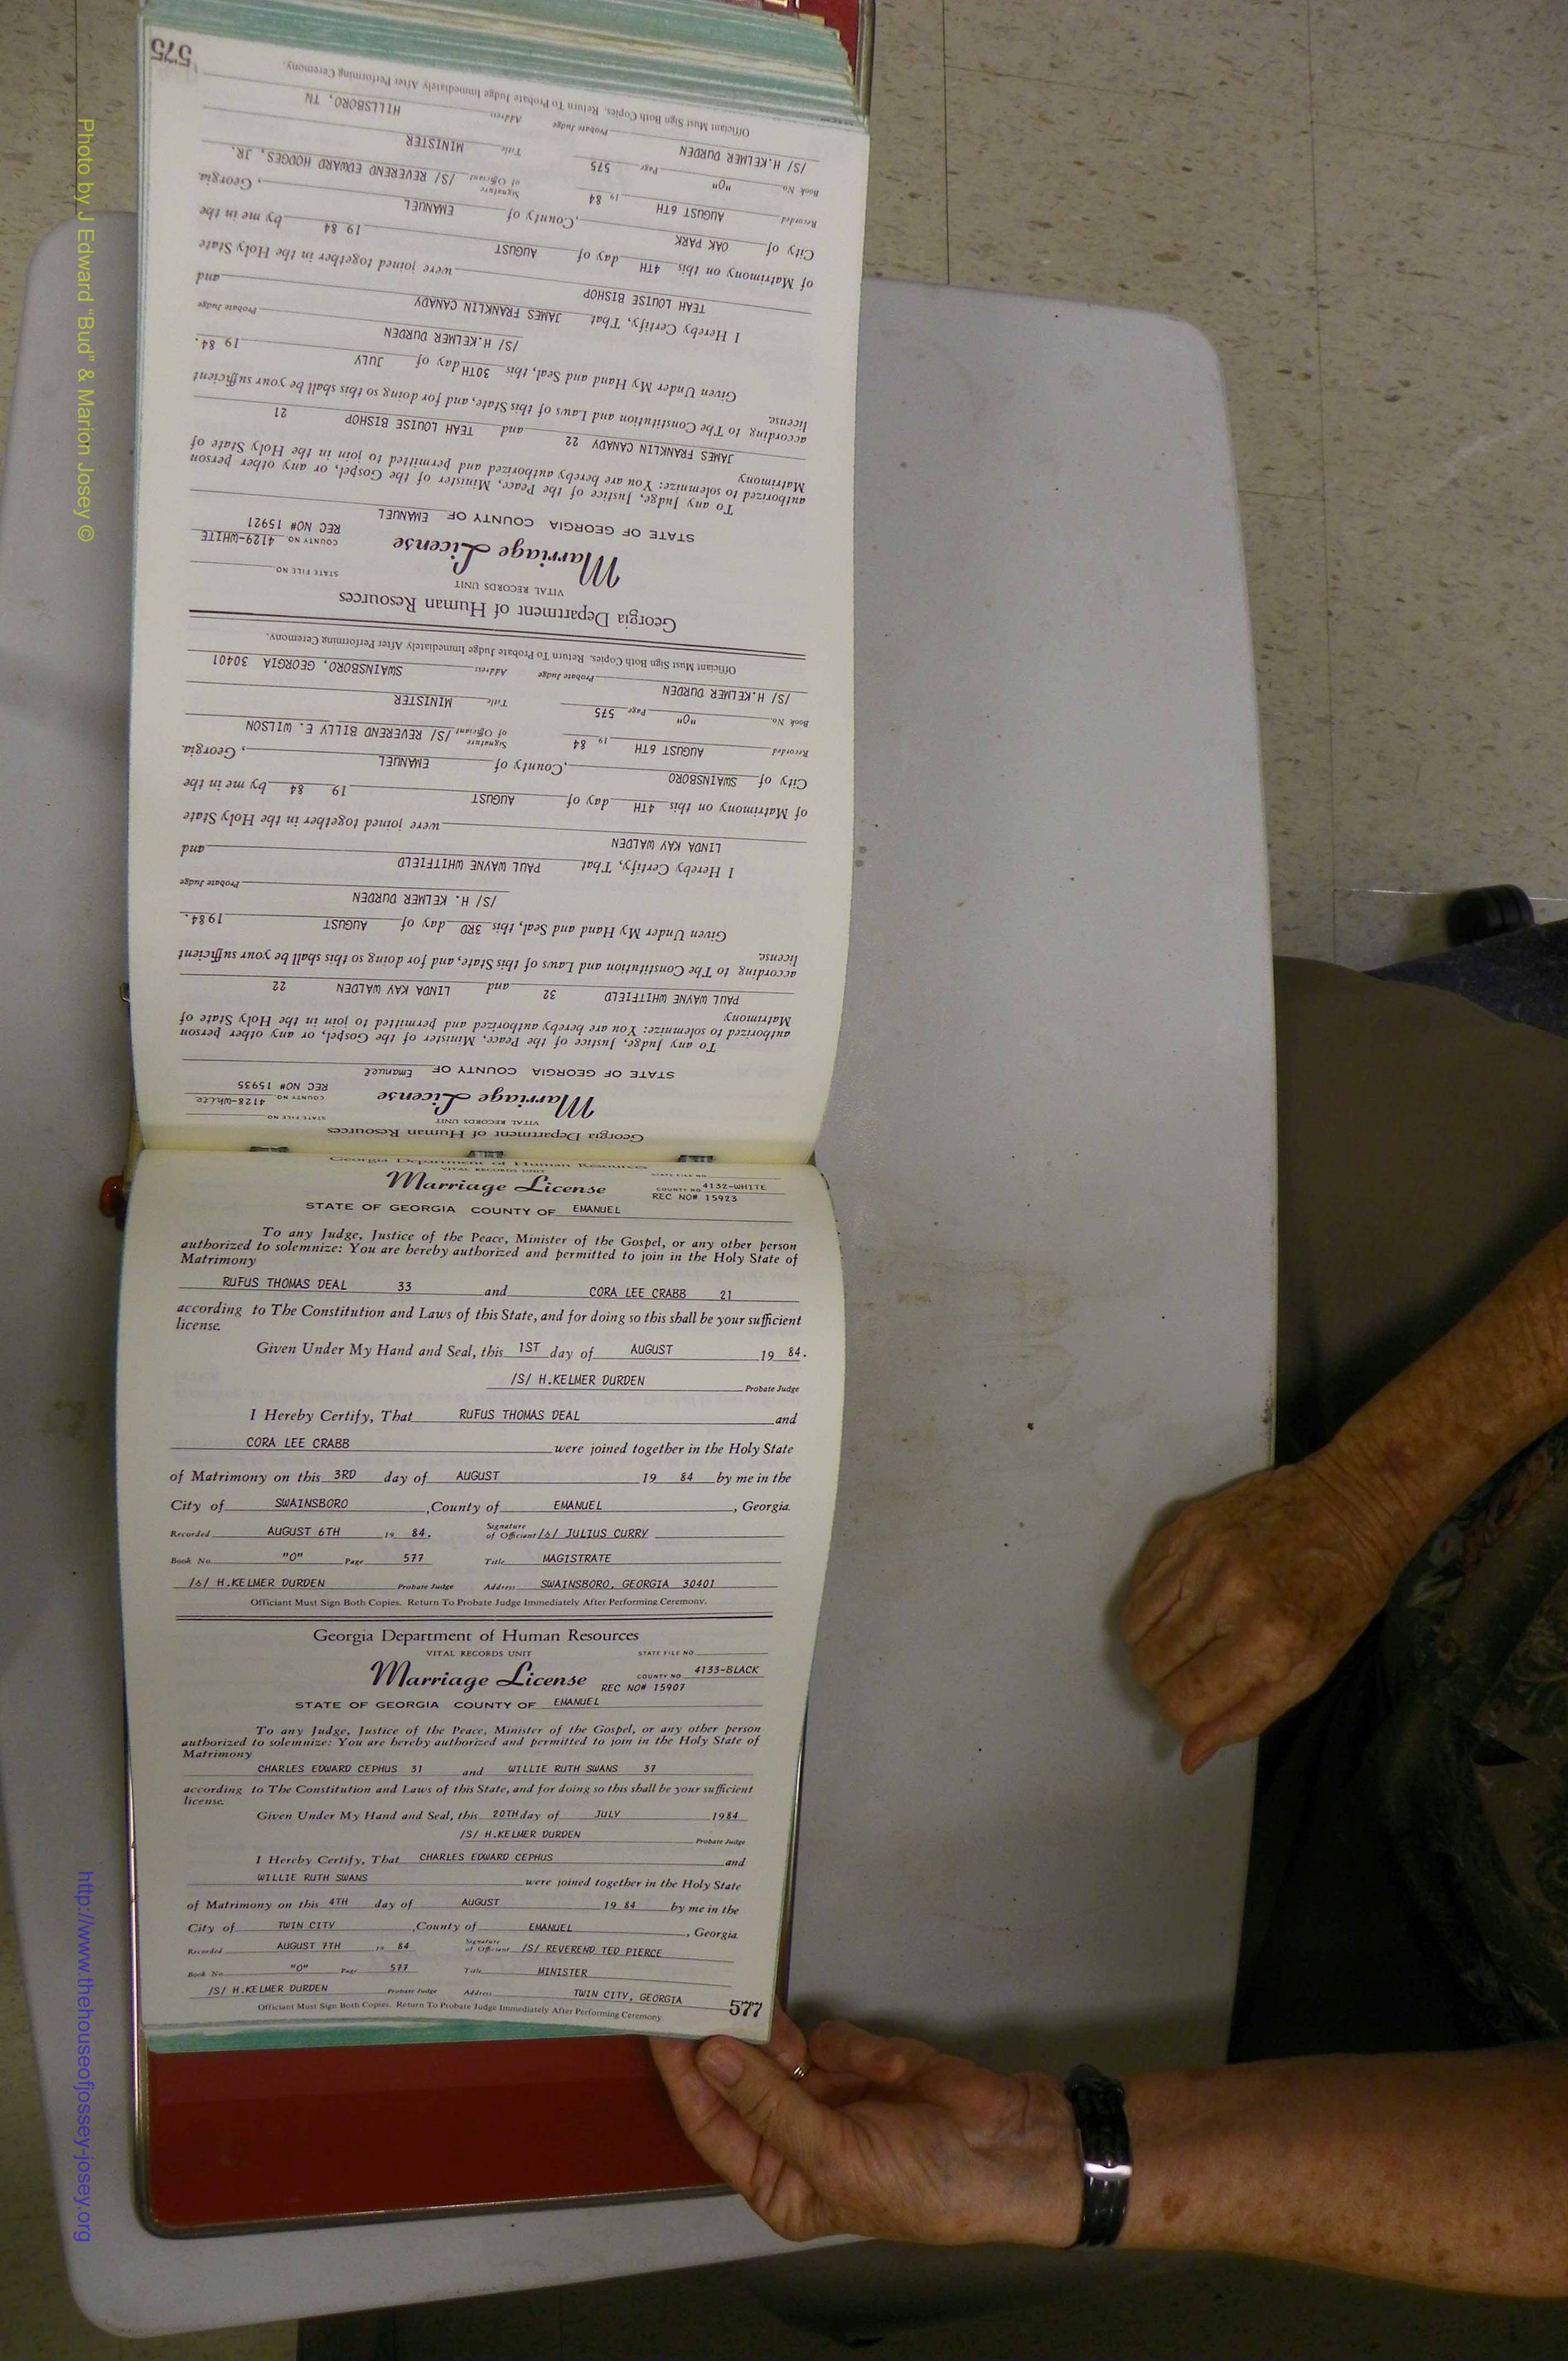 Georgia Department of Human Resources
VITAL RECORDS UNIT
STATE FILE NO
Marriage License
COUNTY NO 4128-White
REC NO# 15935
STATE OF GEORGIA COUNTY OF Emanuel
To any Judge, Justice of the Peace, Minister of the Gospel, or any other person
authorized to solemnize: You are hereby authorized and permitted to join in the Holy State of
Matrimony
PAUL WAYNE WHITFIELD 32 and LINDA KAY WALDEN 22
according to The Constitution and Laws of this State, and for doing so this shall be your sufficient
license.
Given Under My Hand and Seal, this 3RD day of AUGUST 1984.
/S/ H. KELMER DURDEN Probate Judge
I Hereby Certify, That PAUL WAYNE WHITFIELD and
LINDA KAY WALDEN were joined together in the Holy State
of Matrimony on this 4TH day of AUGUST 19 84 by me in the
City of SWAINSBORO ,County of EMANUEL , Georgia.
Recorded AUGUST 6TH 19 84 Signature of Officiant /S/ REVEREND BILLY E. WILSON
Book No. "O" Page 575 Title MINISTER
/S/ H.KELMER DURDEN Probate Judge Address SWAINSBORO, GEORGIA 30401
Officiant Must Sign Both Copies. Return To Probate Judge Immediately After Performing Ceremony.
Georgia Department of Human Resources
VITAL RECORDS UNIT
STATE FILE NO
Marriage License
COUNTY NO 4129-WHITE
REC NO# 15921
STATE OF GEORGIA COUNTY OF EMANUEL
To any Judge, Justice of the Peace, Minister of the Gospel, or any other person
authorized to solemnize: You are hereby authorized and permitted to join in the Holy State of
Matrimony
JAMES FRANKLIN CANADY 22 and TEAH LOUISE BISHOP 21
according to The Constitution and Laws of this State, and for doing so this shall be your sufficient
license.
Given Under My Hand and Seal, this 30TH day of JULY 19 84.
/S/ H.KELMER DURDEN Probate Judge
I Hereby Certify, That JAMES FRANKLIN CANADY and
TEAH LOUISE BISHOP were joined together in the Holy State
of Matrimony on this 4TH day of AUGUST 19 84 by me in the
City of OAK PARK ,County of EMANUEL , Georgia.
Recorded AUGUST 6TH 19 84 Signature of Officiant /S/ REVEREND EDWARD HODGES, JR.
Book No. "O" Page 575 Title MINISTER
/S/ H.KELMER DURDEN Probate Judge Address HILLSBORO, TN
Officiant Must Sign Both Copies. Return To Probate Judge Immediately After Performing Ceremony.
575
Georgia Department of Human Resources
VITAL RECORDS UNIT
STATE FILE NO
Marriage License
COUNTY NO 4132-WHITE
REC NO# 15923
STATE OF GEORGIA COUNTY OF EMANUEL
To any Judge, Justice of the Peace, Minister of the Gospel, or any other person
authorized to solemnize: You are hereby authorized and permitted to join in the Holy State of
Matrimony
RUFUS THOMAS DEAL 33 and CORA LEE CRABB 21
according to The Constitution and Laws of this State, and for doing so this shall be your sufficient
license.
Given Under My Hand and Seal, this 1ST day of AUGUST 19 84.
/S/ H.KELMER DURDEN Probate Judge
I Hereby Certify, That RUFUS THOMAS DEAL and
CORA LEE CRABB were joined together in the Holy State
of Matrimony on this 3RD day of AUGUST 19 84 by me in the
City of SWAINSBORO ,County of EMANUEL , Georgia.
Recorded AUGUST 6TH 19 84. Signature of Officiant /s/ JULIUS CURRY
Book No. "O" Page 577 Title MAGISTRATE
/s/ H.KELMER DURDEN Probate Judge Address SWAINSBORO, GEORGIA 30401
Officiant Must Sign Both Copies. Return To Probate Judge Immediately After Performing Ceremony.
Georgia Department of Human Resources
VITAL RECORDS UNIT
STATE FILE NO
Marriage License
COUNTY NO 4133-BLACK
REC NO# 15907
STATE OF GEORGIA COUNTY OF EMANUEL
To any Judge, Justice of the Peace, Minister of the Gospel, or any other person
authorized to solemnize: You are hereby authorized and permitted to join in the Holy State of
Matrimony
CHARLES EDWARD CEPHUS 31 and WILLIE RUTH SWANS 37
according to The Constitution and Laws of this State, and for doing so this shall be your sufficient
license.
Given Under My Hand and Seal, this 20TH day of JULY 1984
/S/ H.KELMER DURDEN Probate Judge
I Hereby Certify, That CHARLES EDWARD CEPHUS and
WILLIE RUTH SWANS were joined together in the Holy State
of Matrimony on this 4TH day of AUGUST 19 84 by me in the
City of TWIN CITY ,County of EMANUEL , Georgia.
Recorded AUGUST 7TH 19 84 Signature of Officiant /S/ REVEREND TED PIERCE
Book No "O" Page 577 Title MINISTER
/S/ H.KELMER DURDEN Probate Judge Address TWIN CITY, GEORGIA
Officiant Must Sign Both Copies. Return To Probate Judge Immediately After Performing Ceremony.
577
Photo by J Edward "Bud" & Marion Josey ©
http://www.thehouseofjossey-josey.org